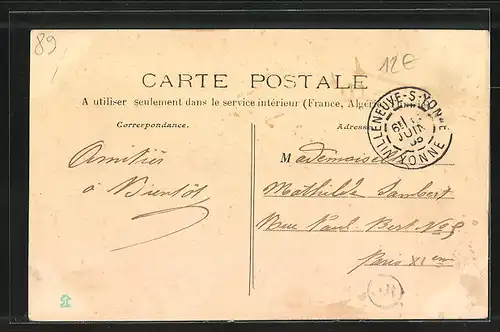 89
12€
CARTE POSTALE
A utiliser seulement dans le service intérieur (France, Algérie
Correspondance.
Adresse
VILLENEUVE-S-YONNE
JUIN
YONNE
Amitiés
à Bientôt
Mademoiselle
Mathilde Lambert
Rue Paul Bert No 5
Paris XI em